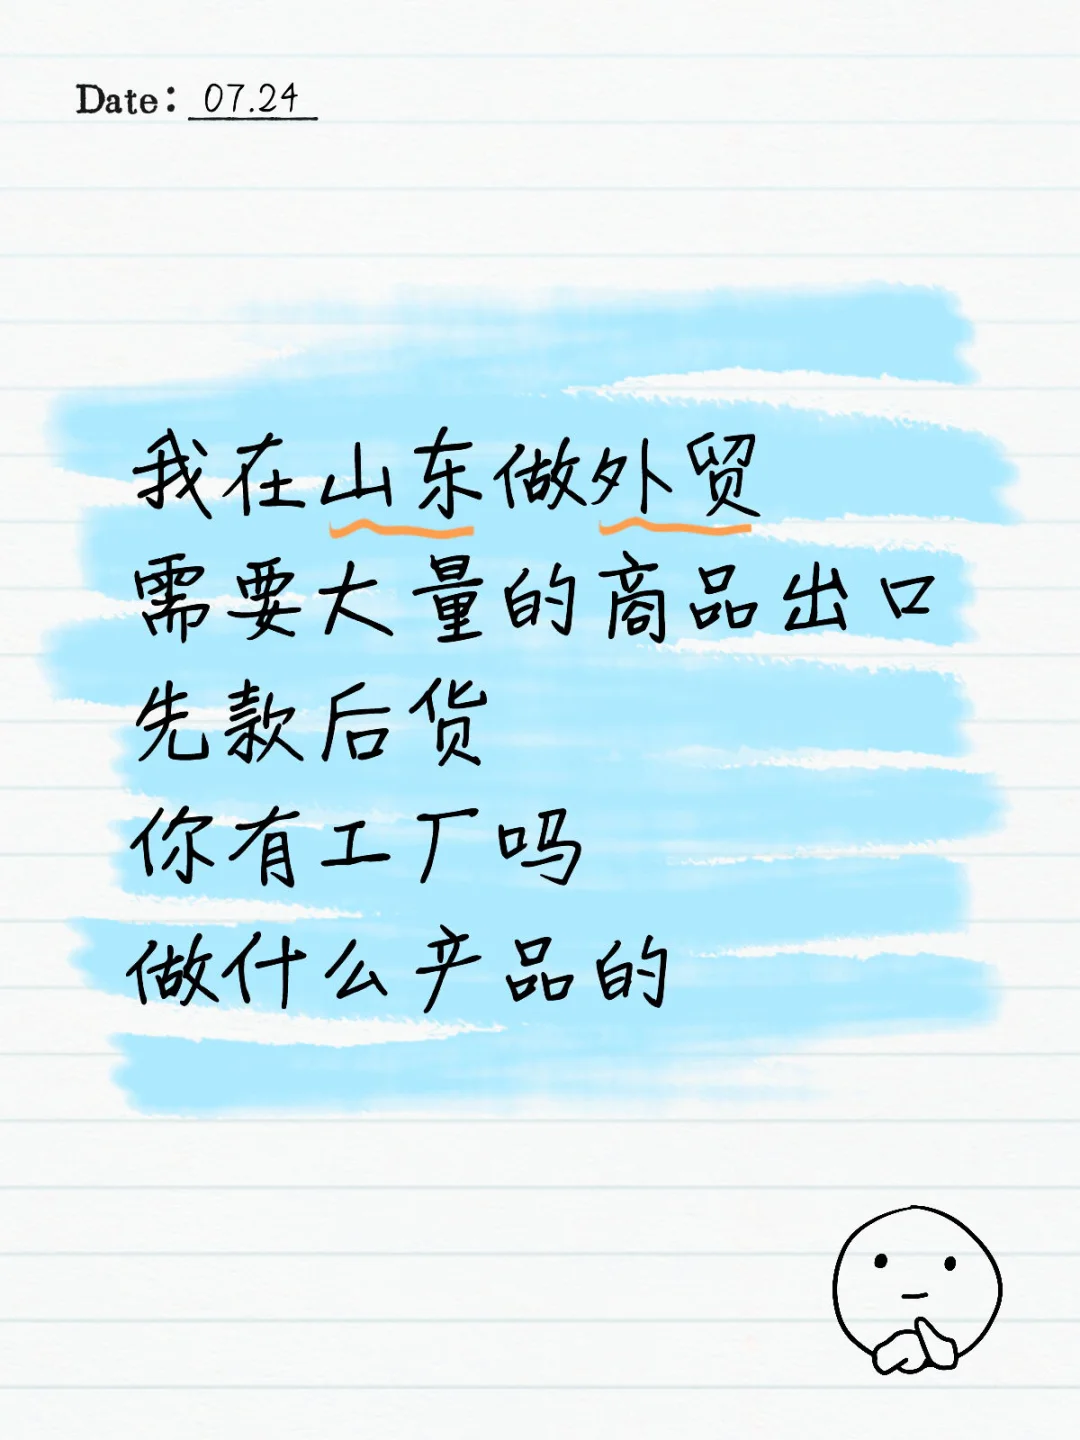 Date: 07.24
我在山东做外贸
需要大量的商品出口
先款后货
你有工厂吗
做什么产品的